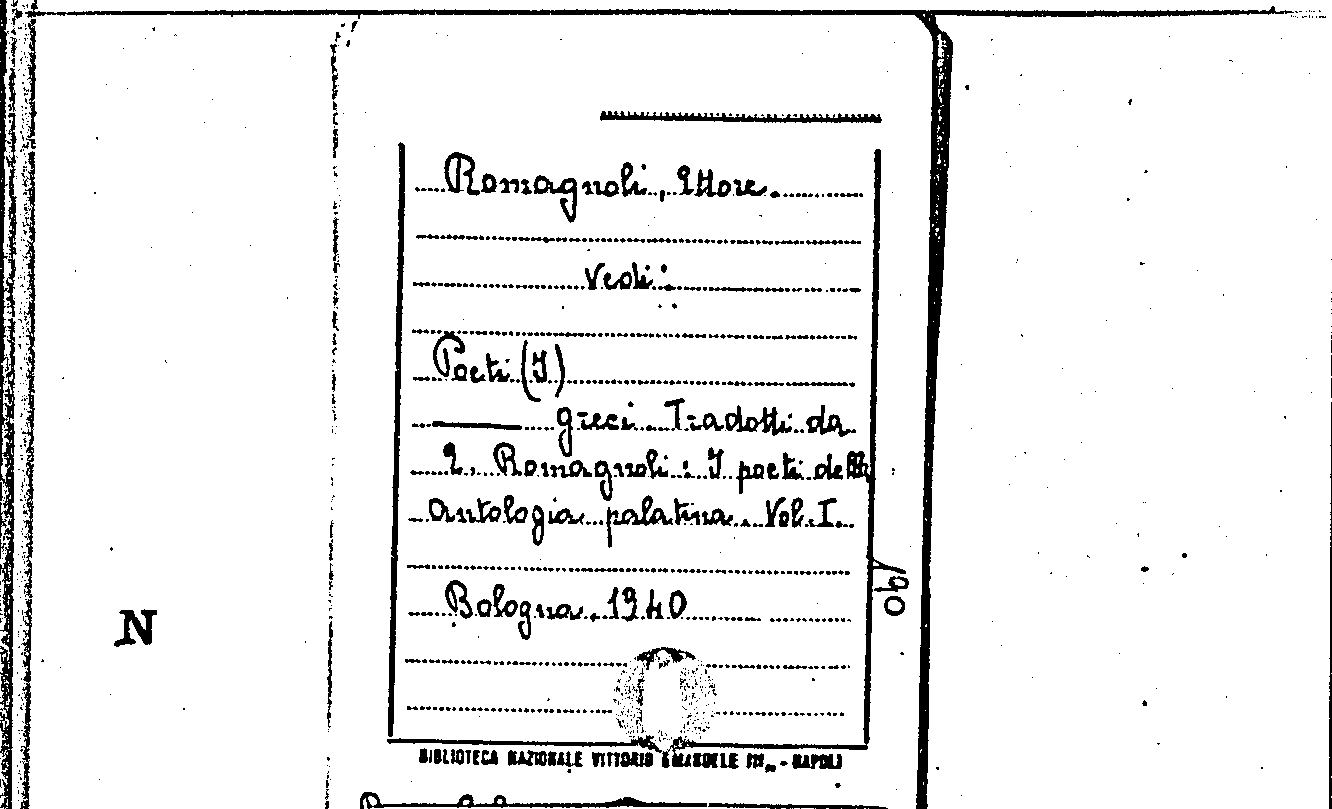 Romagnoli, Ettore.
Vedi:
Poeti (I)
——— greci. Tradotti da
E. Romagnoli: I poeti della
antologia palatina. Vol. I.
Bologna. 1940
BIBLIOTECA NAZIONALE VITTORIO EMANUELE III - NAPOLI
N